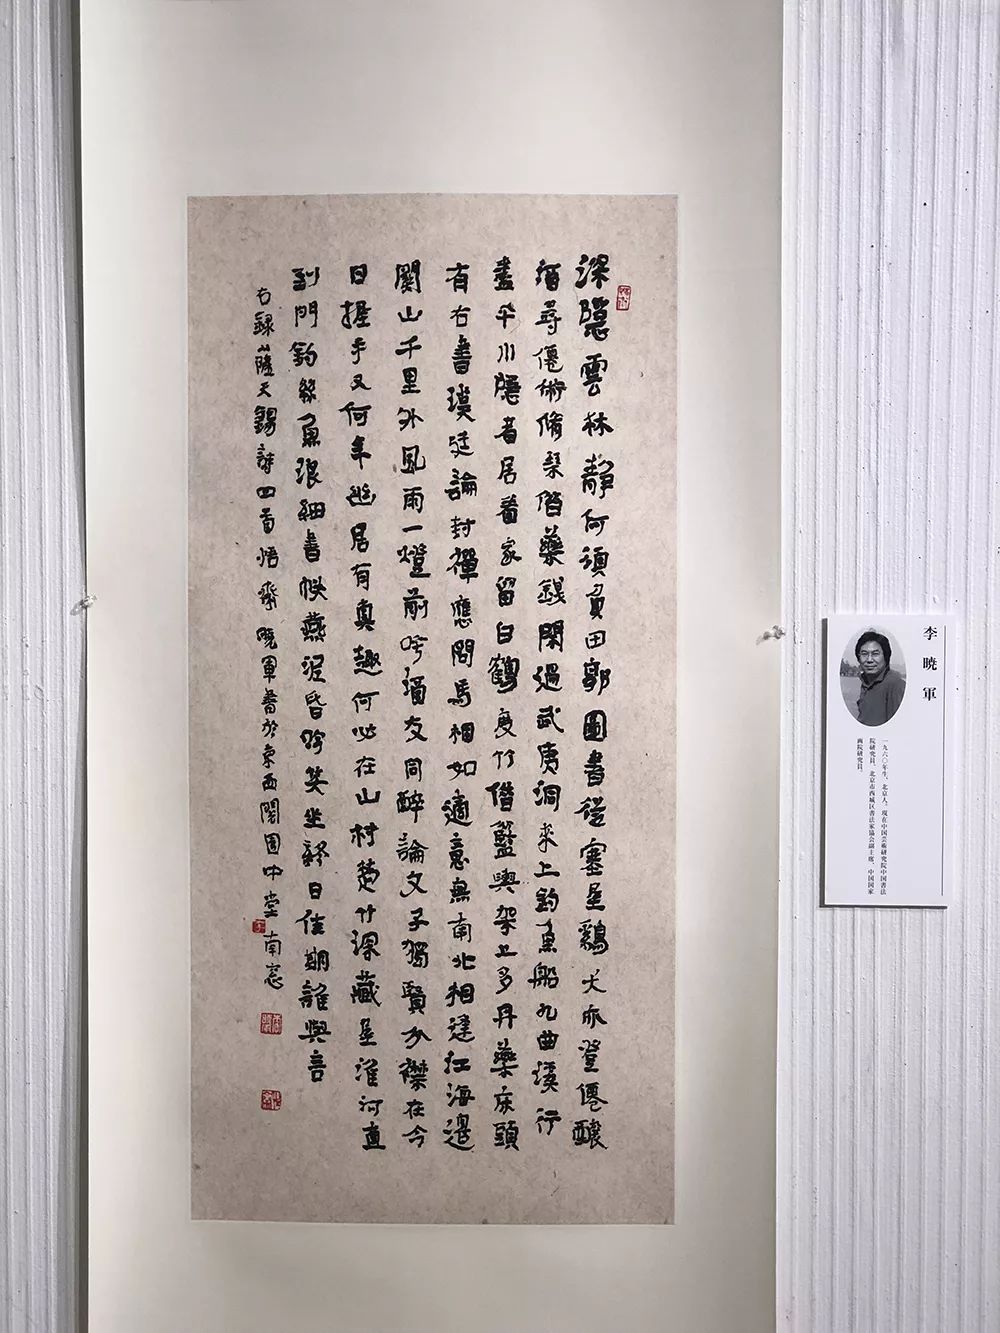 深隱雲林靜何須負田郭圖書從塞屋鷄犬亦登僊釀
酒尋僊術脩琹借藥錢閑過武夷洞来上釣魚船九曲溪行
盡平川隱者居着家留白鶴度竹借籃輿架上多丹藥床頭
有古書漢廷論封禪應問馬相如適意無南北相逢江海邊
關山千里外風雨一燈前呼酒友同醉論文子獨賢分襟在今
日握手又何年幽居有真趣何必在山村楚竹深藏屋淮河直
到門釣絲魚浪細書帙燕泥昏吟笑坐終日佳期誰與言
右録薩天錫詩四首悟齋曉軍書於東西閣園中堂南窓
李暁軍
一九六〇年生、北京人。現在中国芸術研究院中国書法
院研究員、北京市西城区書法家協会副主席、中国国家
画院研究員。